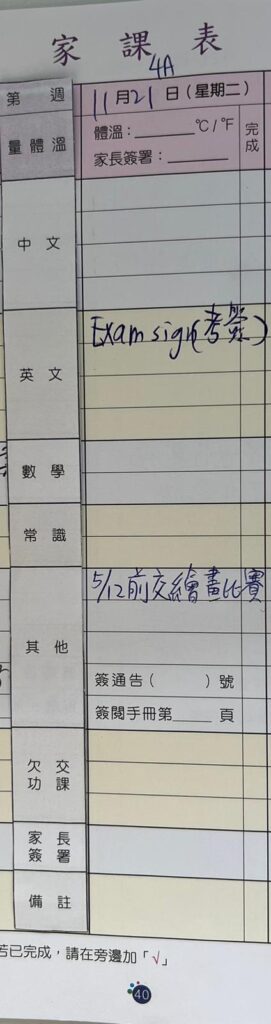 家課表
4A
第 週 11月21日(星期二)
量體溫 體溫：______°C/°F 完成
家長簽署：______
中文
英文 Exam sign(考簽)
數學
常識
5/12前交繪畫比賽
其他
簽通告( )號
簽閱手冊第____頁
欠交功課
家長簽署
備註
若已完成，請在旁邊加「√」
40